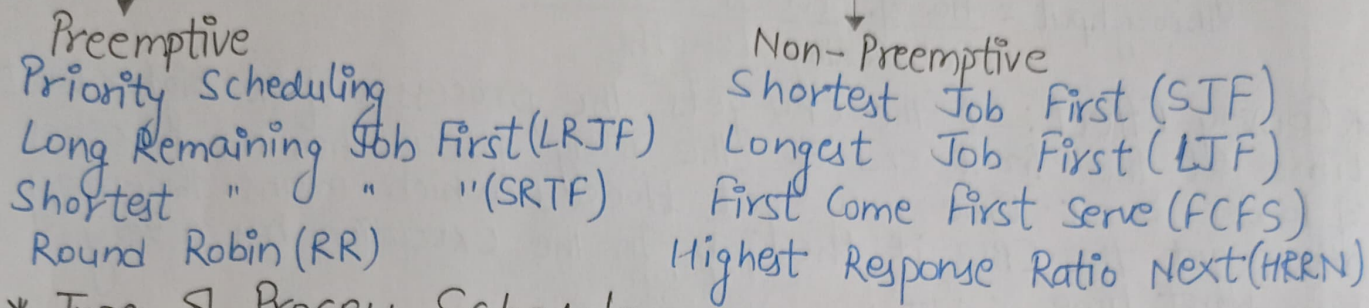 Preemptive
Priority Scheduling
Long Remaining Job First (LRJF)
Shortest " " " (SRTF)
Round Robin (RR)
Non-Preemptive
Shortest Job First (SJF)
Longest Job First (LJF)
First Come First Serve (FCFS)
Highest Response Ratio Next (HRRN)